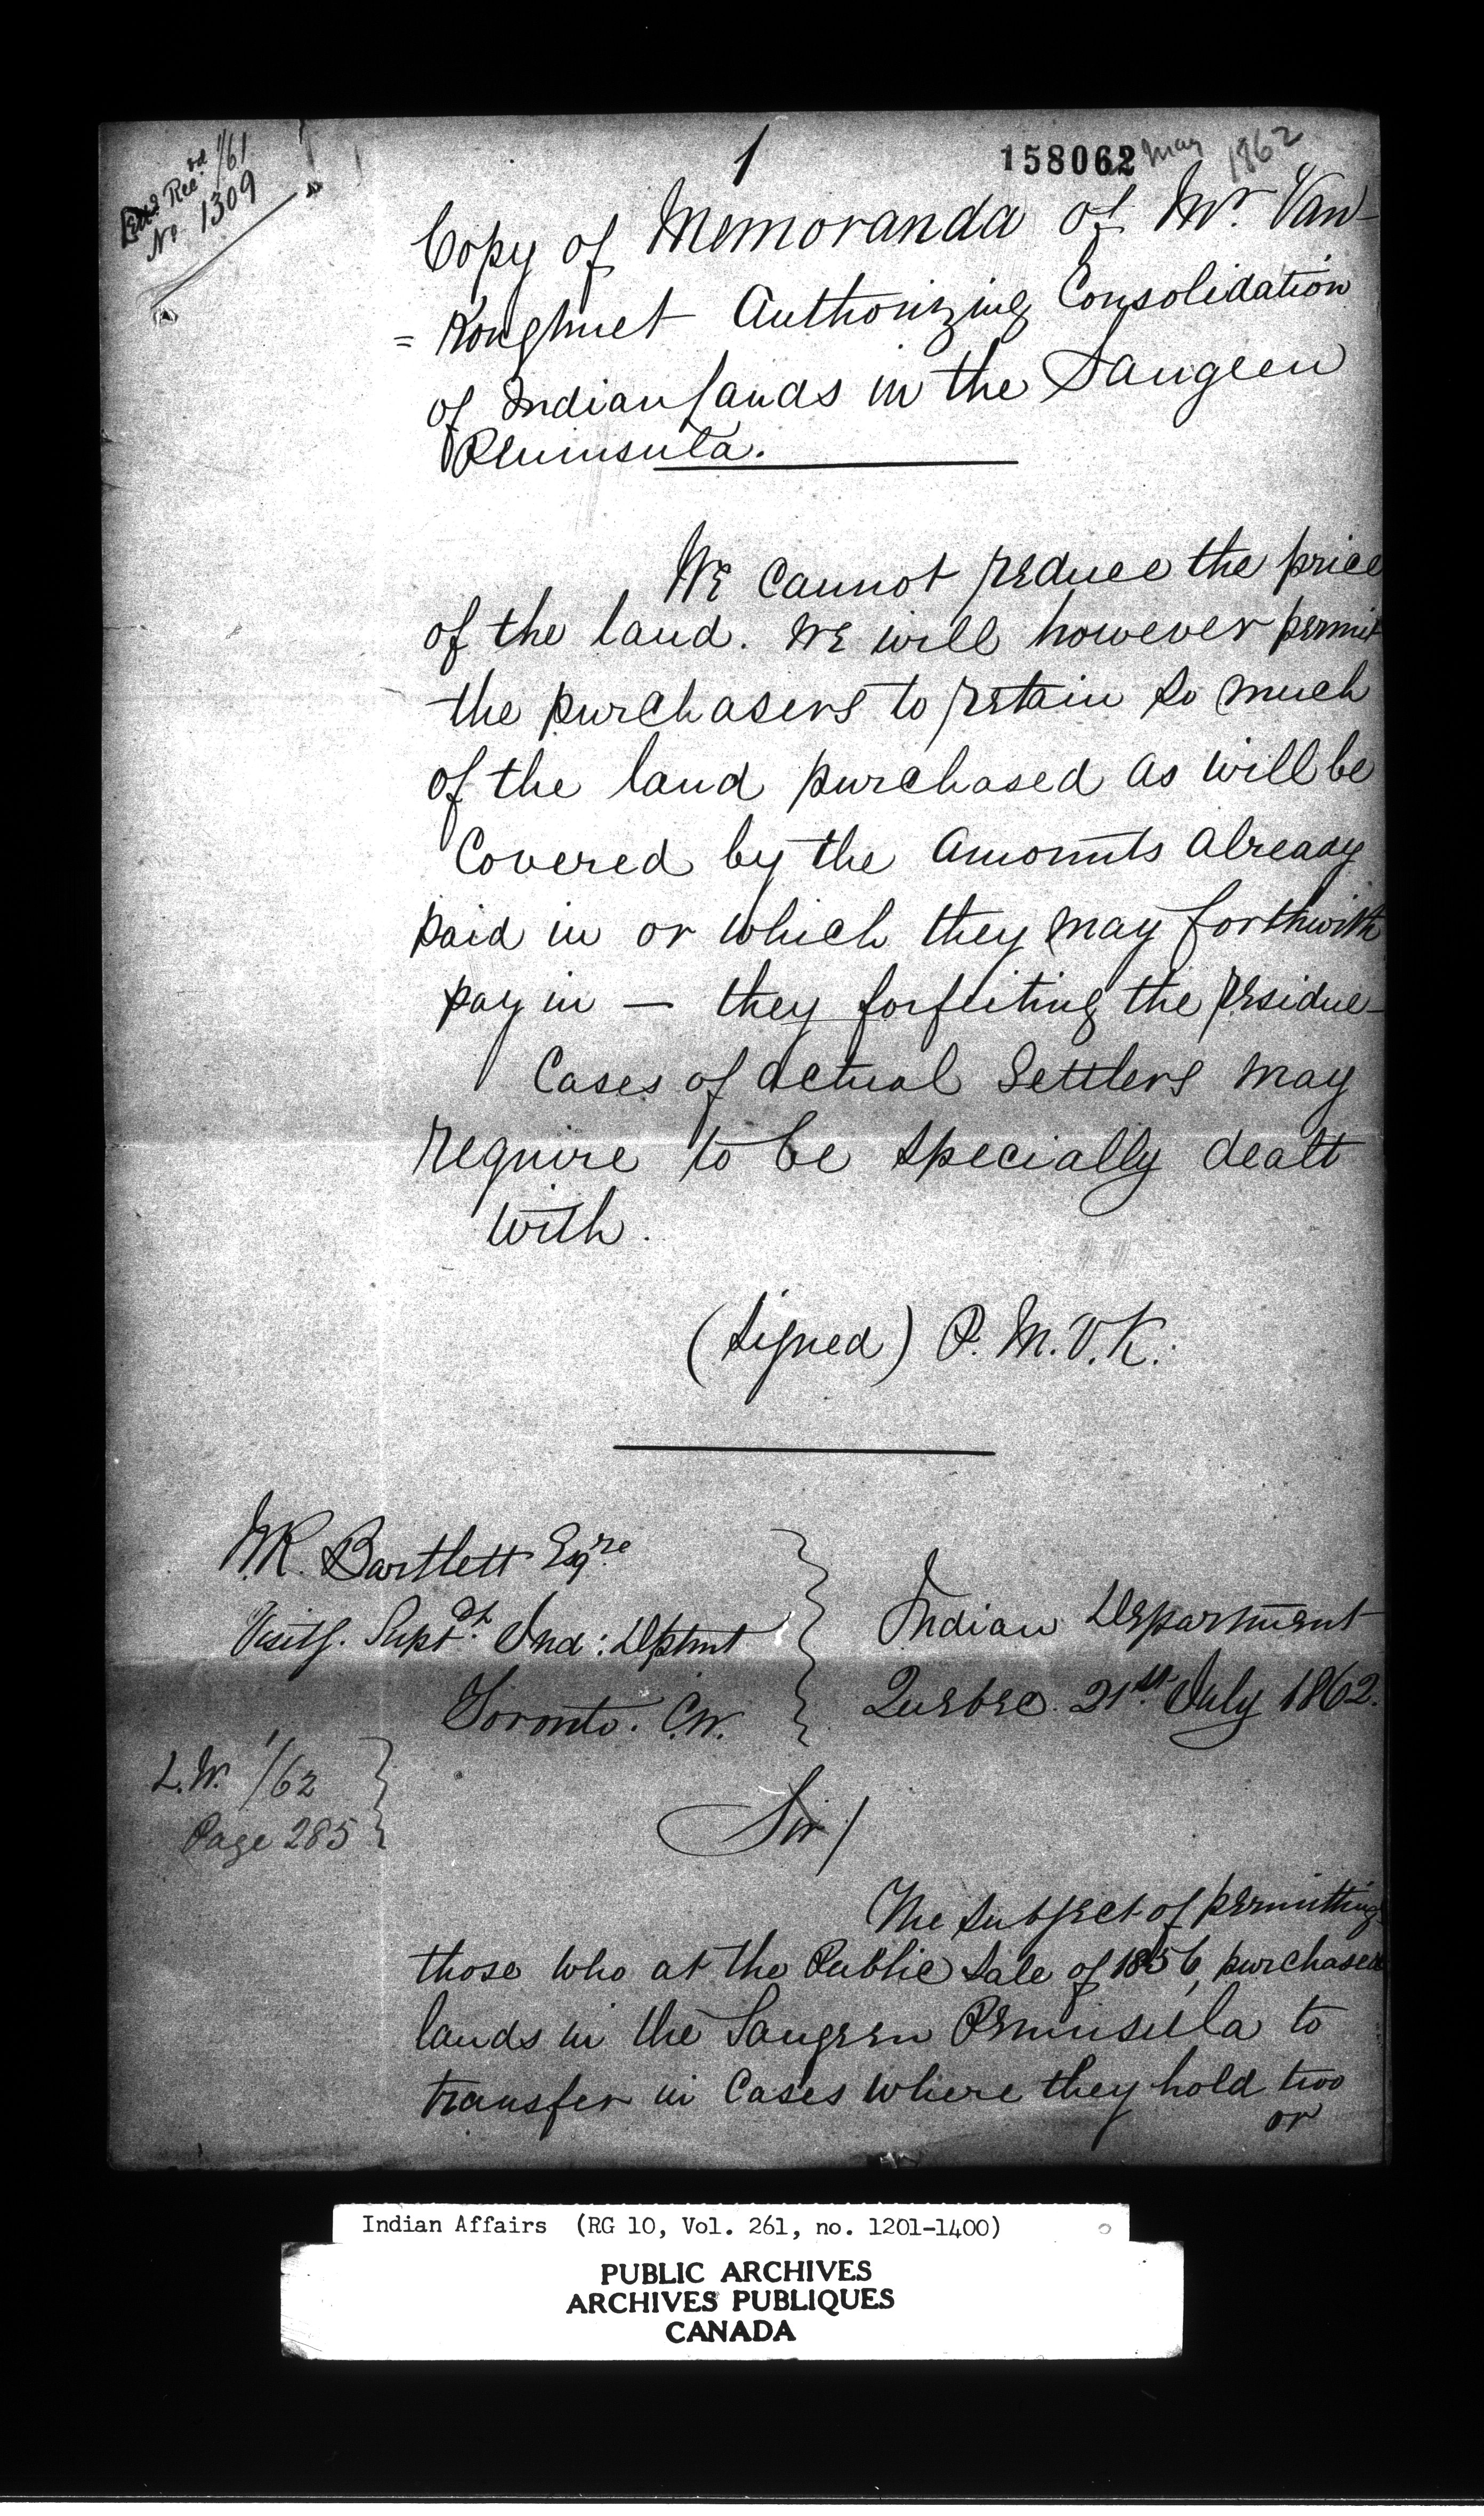 Lrs Rec.d 1/61
No 1309
1
158062 May 1862
Copy of Memoranda of Mr. Van-
=Koughnet Authorizing Consolidation
of Indian Lands in the Saugeen
Peninsula.
We cannot reduce the price
of the land. We will however permit
the purchasers to retain so much
of the land purchased as will be
Covered by the amounts already
paid in or which they may forthwith
pay in — they forfeiting the residue —
Cases of actual Settlers may
require to be specially dealt
with.
(Signed) P. M. V. K.
W.R. Bartlett Esqre
Visitg. Supdt. Ind: Deptmt
Toronto. C.W.
Indian Department
Quebec. 21st July 1862.
L.W. 1/62
Page 285
Sir/
The subject of permitting
those who at the Public Sale of 1856, purchased
lands in the Saugeen Peninsula to
transfer in Cases where they hold two
or
Indian Affairs (RG 10, Vol. 261, no. 1201-1400)
PUBLIC ARCHIVES
ARCHIVES PUBLIQUES
CANADA